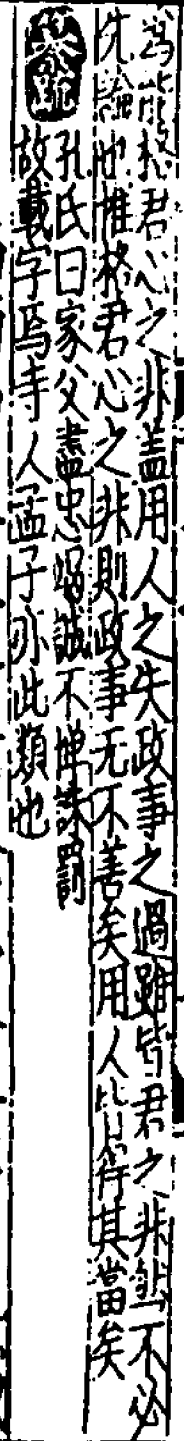 為能格君心之非蓋用人之失政事之過雖皆君之非然不必
先論也惟格君心之非則政事无不善矣用人皆得其當矣
孔氏曰家父盡忠竭誠不憚誅罰
故載字焉寺人孟子亦此類也